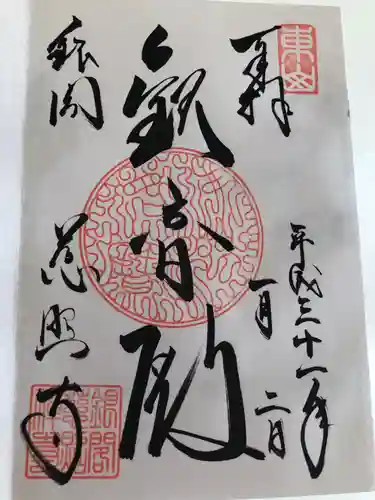 東山
奉拝
平成三十一年
一月二日
觀音殿
銀閣
慈照寺